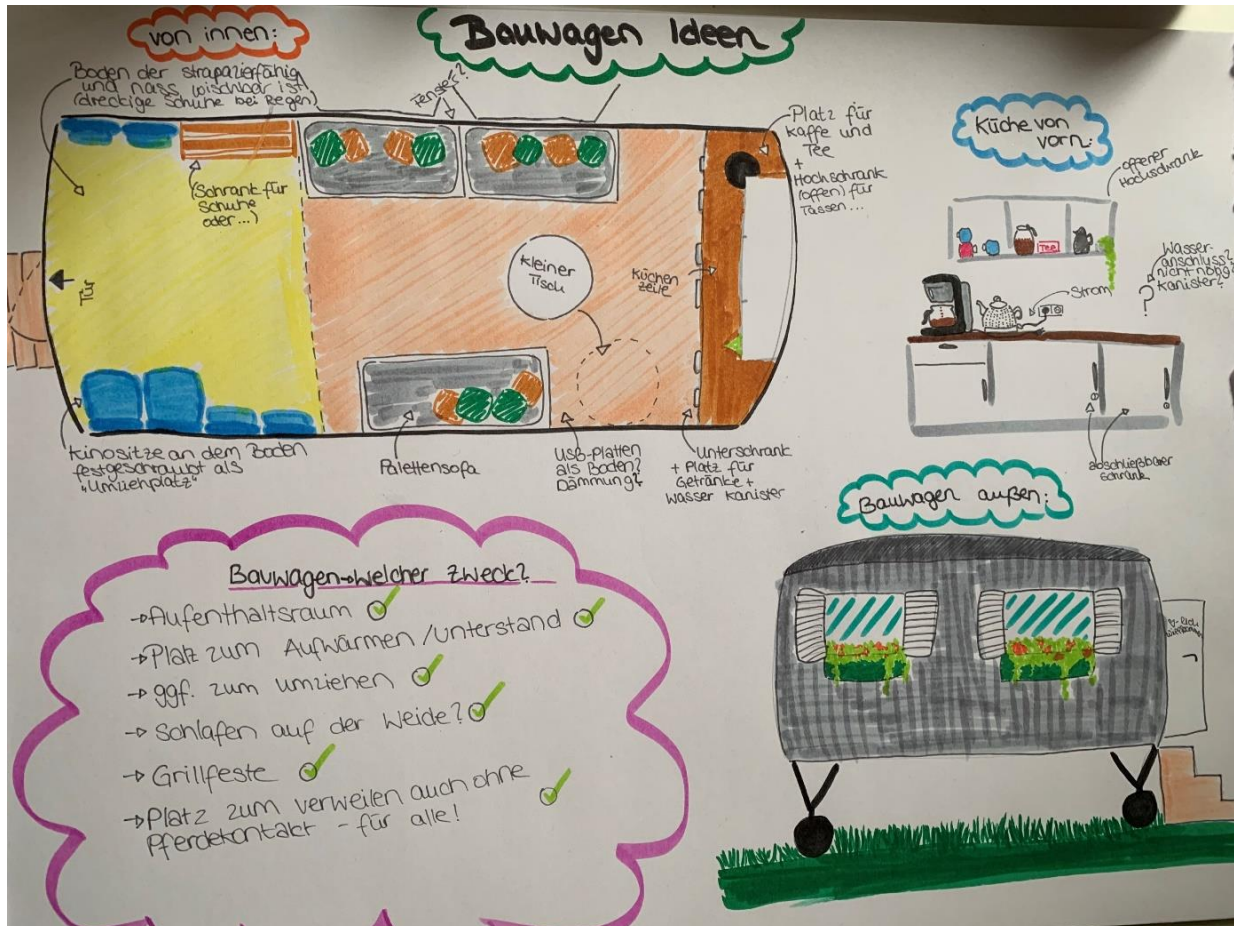 Bauwagen Ideen
von innen:
Boden der strapazierfähig
und nass wischbar ist
(dreckige Schuhe bei Regen)
Fenster?
(Schrank für
Schuhe
oder...)
Tür
kleiner
Tisch
Küchen
zeile
Platz für
kaffe und
Tee
+
Hochschrank
(offen) für
Tassen...
Kinositze an dem Boden
festgeschraubt als
"Umziehplatz"
Palettensofa
USB-Platten
als Boden?
Dämmung?
Unterschrank
+ Platz für
Getränke +
Wasser Kanister
Küche von
vorn:
offener
Hochschrank
TEE
Wasser-
anschluss?
nicht nötig?
Kanister?
?
Strom
abschließbarer
Schrank
Bauwagen außen:
Bauwagen→welcher Zweck?
→Aufenthaltsraum
→Platz zum Aufwärmen/Unterstand
→ggf. zum umziehen
→Schlafen auf der Weide?
→Grillfeste
→Platz zum verweilen auch ohne
Pferdekontakt - für alle!